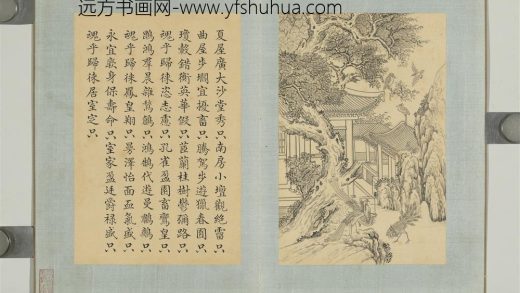 远方书画网-www.yfshuhua.com
夏屋廣大沙堂秀只南房小壇觀絕霤只
曲屋步壛宜擾畜只騰駕步遊獵春囿只
瓊轂錯衡英華假只茝蘭桂樹鬱彌路只
魂乎歸徠恣志慮只孔雀盈園畜鸞皇只
鵾鴻羣晨雜鶖鶬只鴻鵠代遊曼鷫鷞只
魂乎歸徠鳳皇翔只曼澤怡面血氣盛只
永宜厥身保壽命只室家盈廷爵祿盛只
魂乎歸徠居室定只